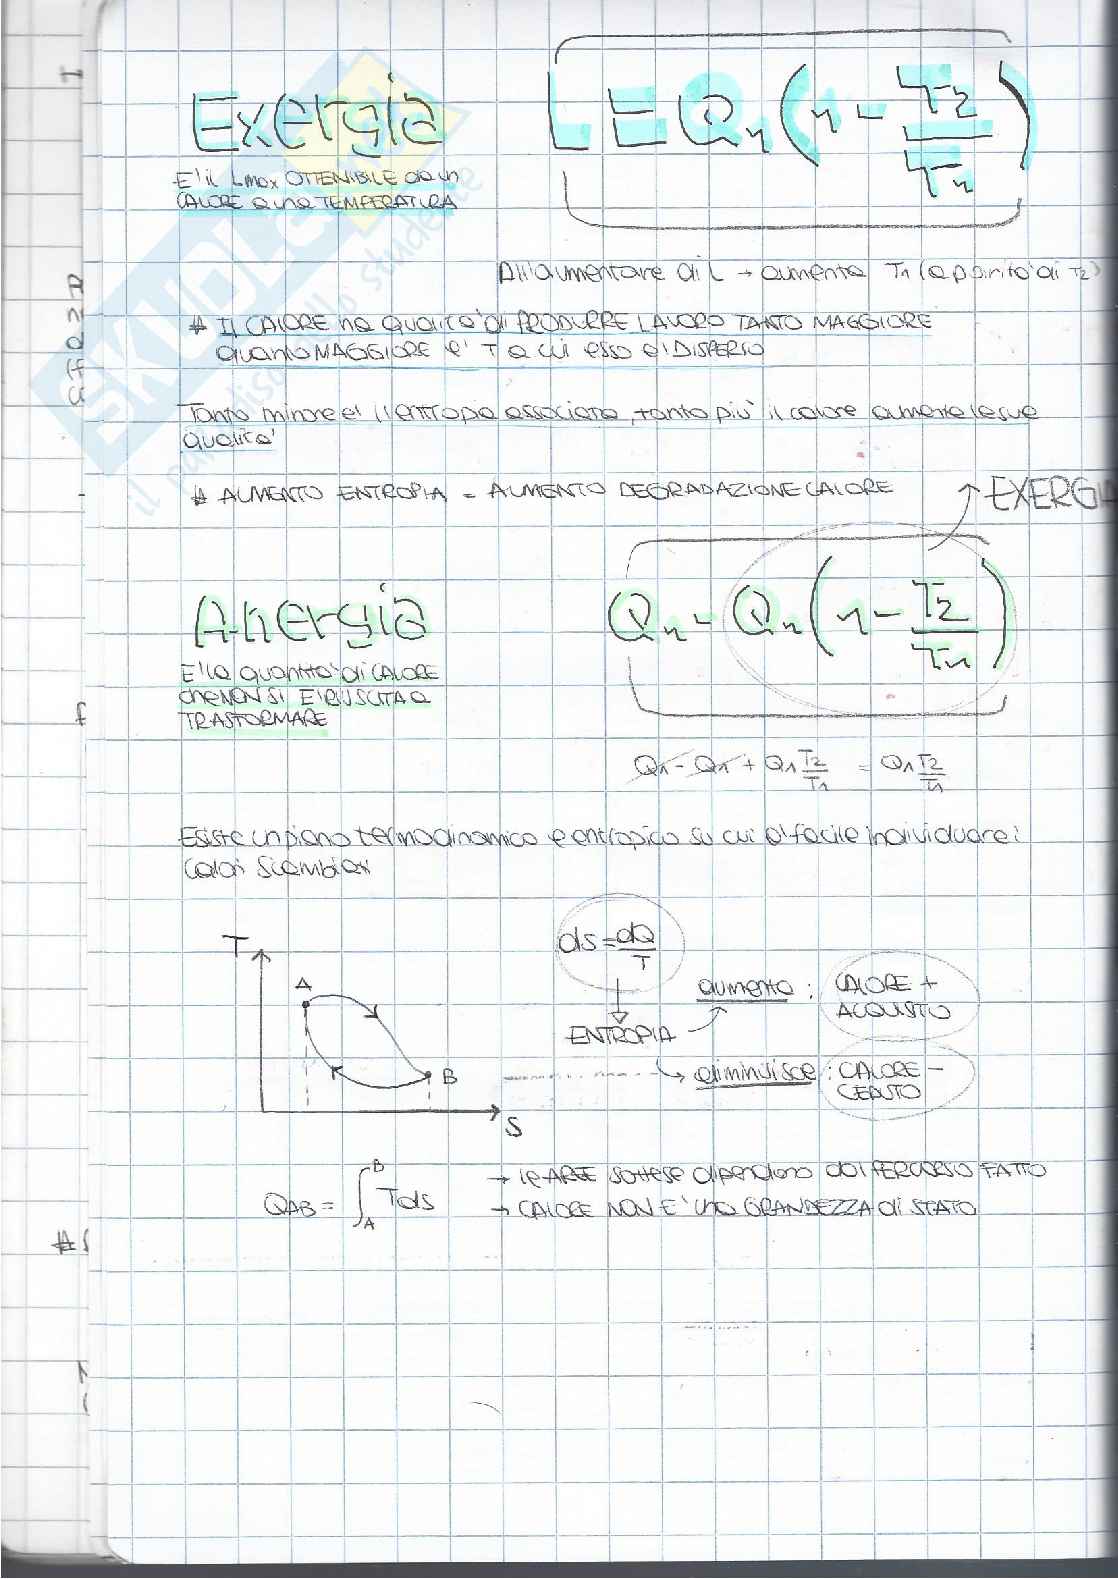 Exergia
L = Q1 (1 - T2/T1)
E' il Lmax OTTENIBILE da un
CALORE a una TEMPERATURA
All'aumentare di L → aumenta T1 (a parità di T2)
# Il CALORE ha qualità di PRODURRE LAVORO TANTO MAGGIORE
quanto MAGGIORE e' T a cui esso e' DISPERSO
Tanto minore e' l'entropia associata, tanto più il calore aumenta le sue
qualità
# AUMENTO ENTROPIA = AUMENTO DEGRADAZIONE CALORE
EXERGIA
Anergia
Q1 - Q1 (1 - T2/T1)
E' la quantità di CALORE
che NON SI E' RIUSCITA a
TRASFORMARE
Q1 - Q1 + Q1 T2/T1 = Q1 T2/T1
Esiste un piano termodinamico e entropico su cui e' facile individuare i
calori scambiati
T
A
B
S
ds = dQ/T
ENTROPIA
aumenta : CALORE +
ACQUISTO
diminuisce : CALORE -
CEDUTO
QAB = ∫AB Tds
→ le AREE sottese dipendono dal PERCORSO FATTO
→ CALORE NON E' una GRANDEZZA di STATO
SKUOLA
il paradiso dello studente